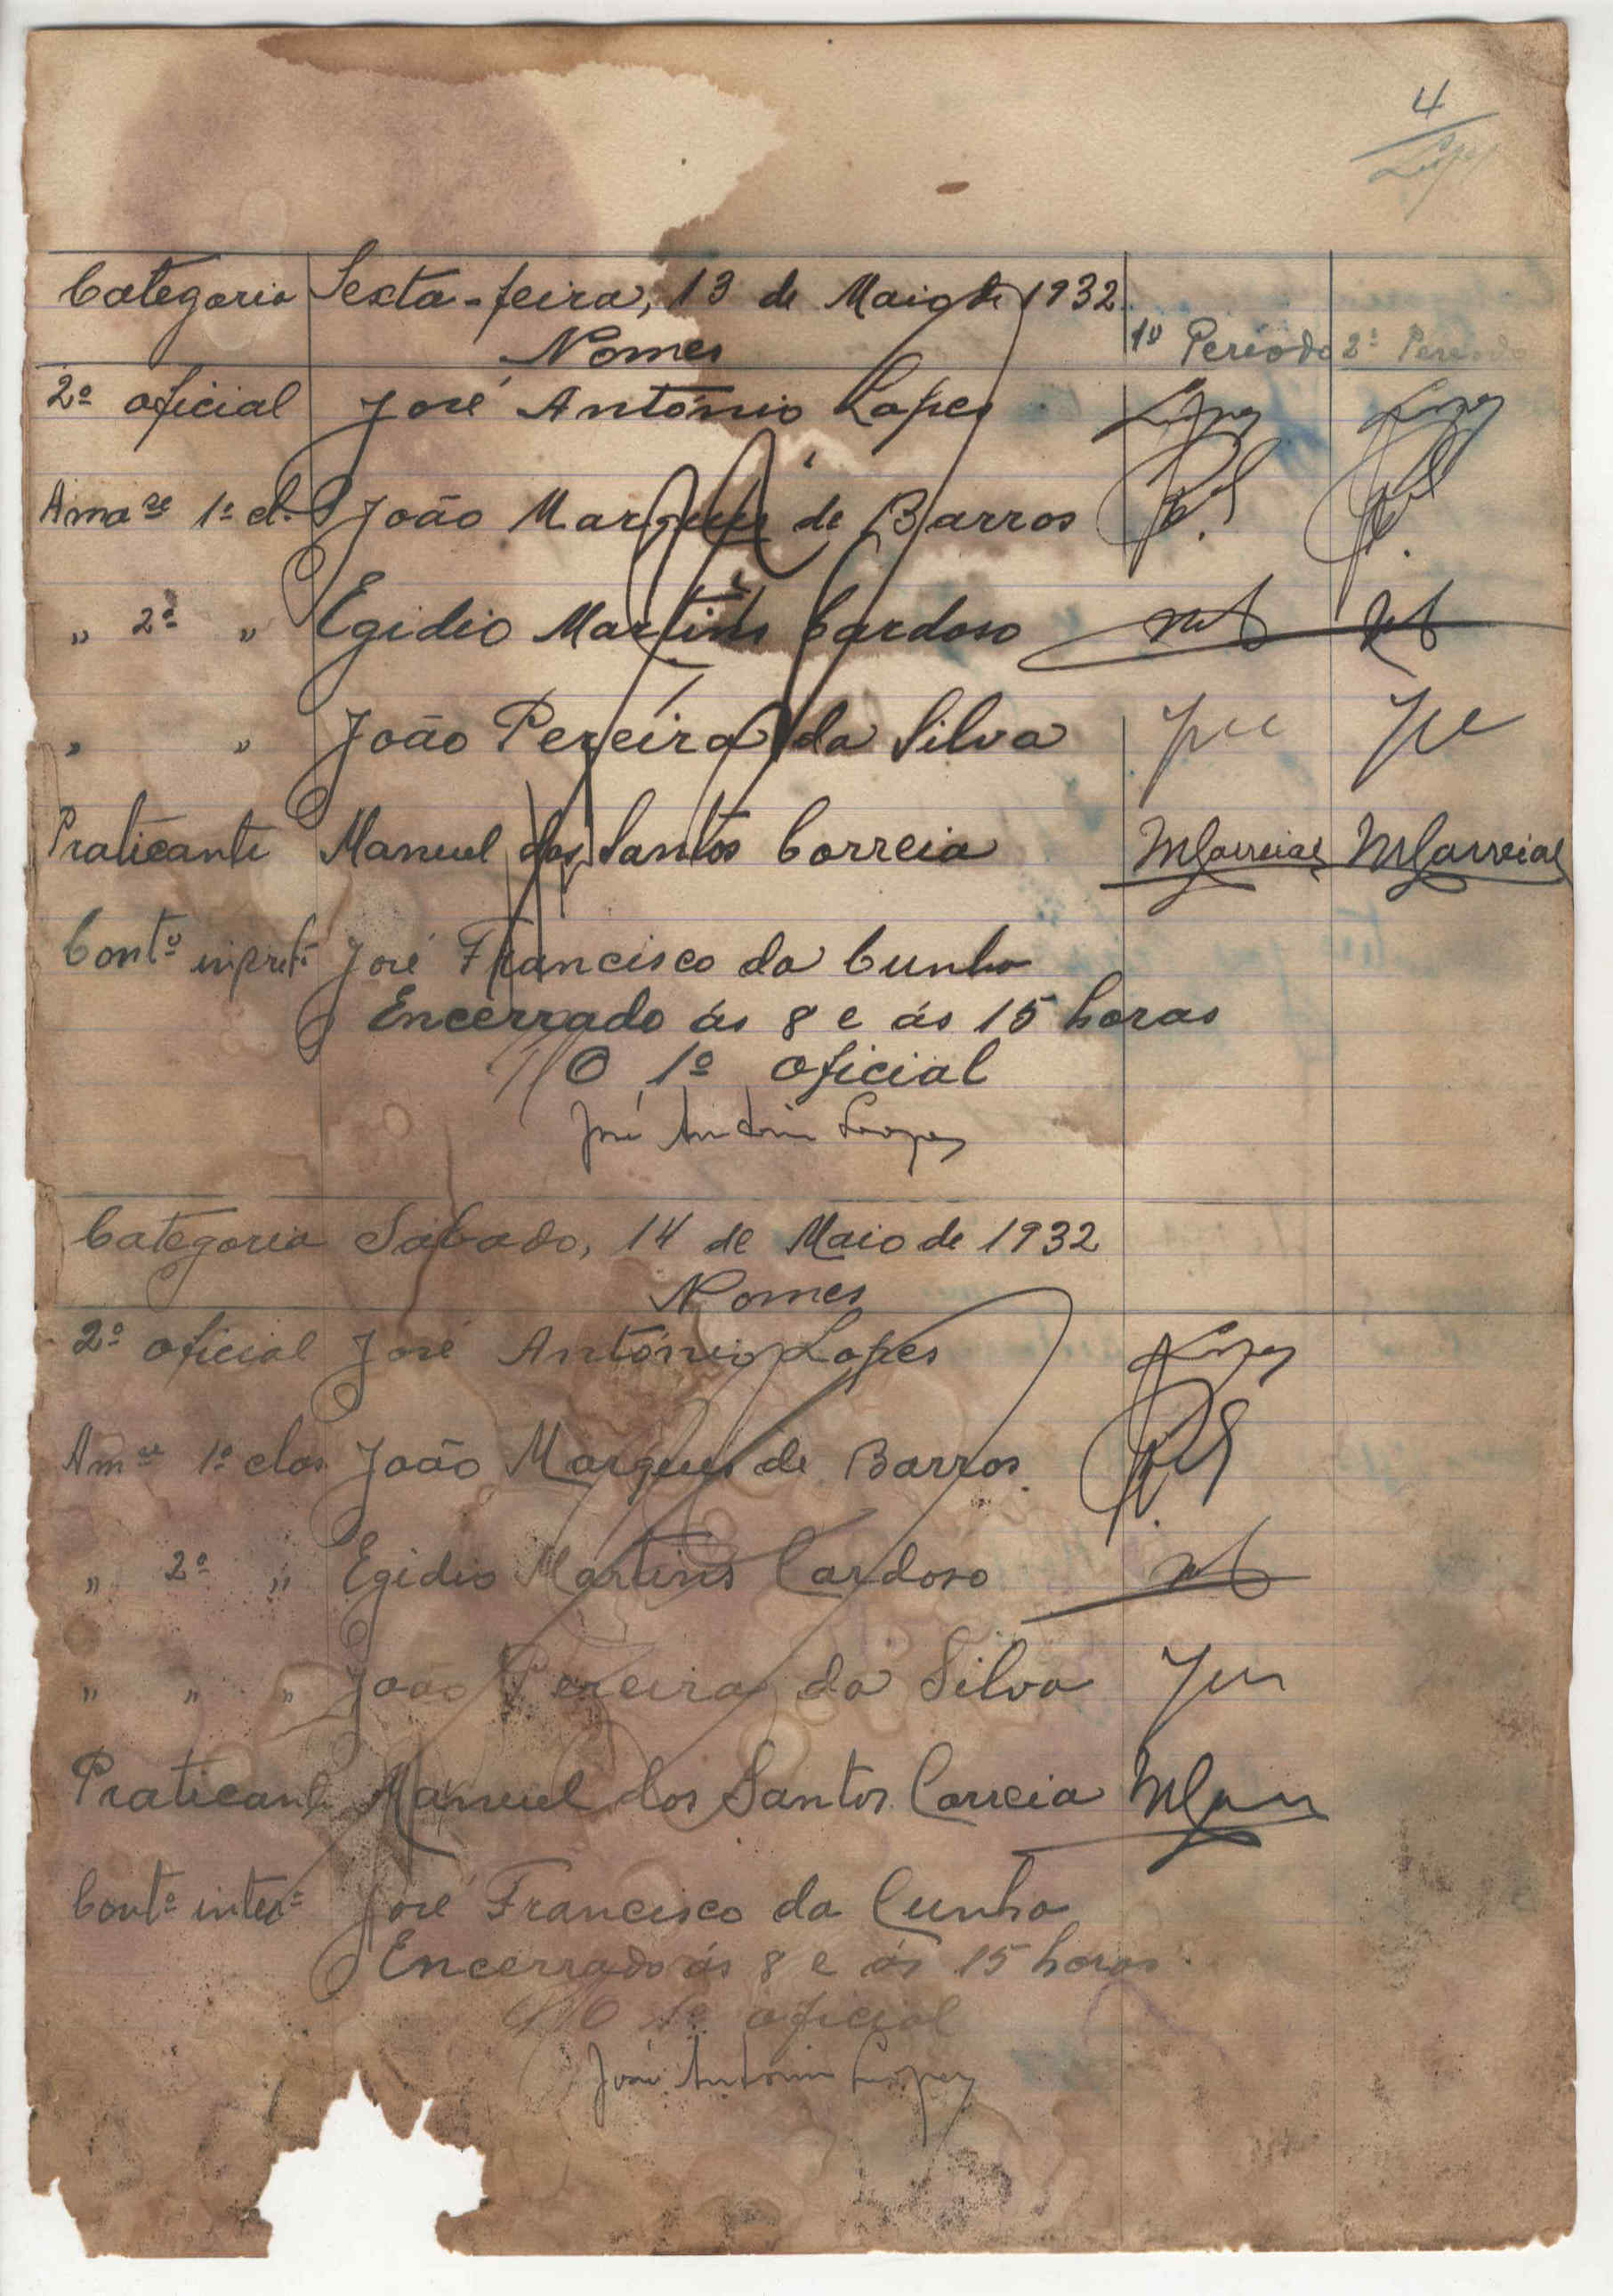 4
Lopes
Categoria Sexta-feira, 13 de Maio de 1932
Nomes 1º Periodo 2º Periodo
2º oficial José António Lopes Lopes Lopes
Ama.se 1ª cl. João Marques de Barros
" 2ª " Egidio Martins Cardoso
" " João Pereira da Silva
Praticante Manuel dos Santos Correia MCorreia MCorreia
Cont.º José Francisco da Cunha
Encerrado ás 8 e ás 15 horas
O 1º oficial
José António Lopes
Categoria Sabado, 14 de Maio de 1932
Nomes
2º oficial José António Lopes Lopes
Am.se 1ª clas João Marques de Barros
" 2ª " Egidio Martins Cardoso
" " " João Pereira da Silva
Praticante Manuel dos Santos Correia
Cont.º inter.º José Francisco da Cunha
Encerrado ás 8 e ás 15 horas
O 1º oficial
José António Lopes